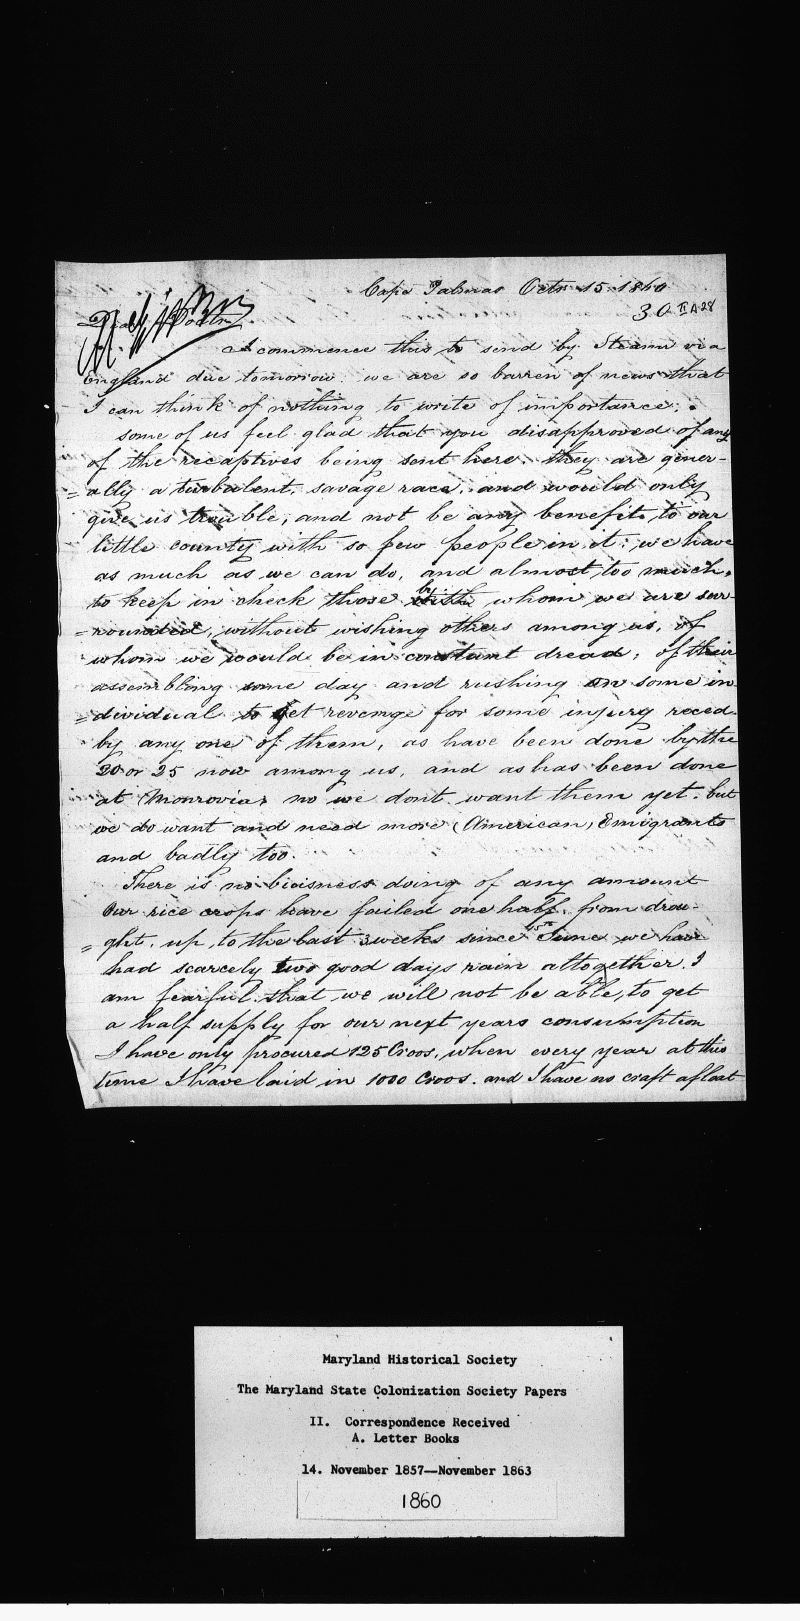 Cape Palmas Octr 15. 1860
30 II A 28
I commence this to send by Steamr via
England due tomorrow. we are so barren of news that
I can think of nothing to write of importance.
some of us feel glad that you disapproved of any
of the recaptives being sent here. they are gener-
=ally a turbulent, savage race, and would only
give us trouble, and not be any benefit to our
little county with so few people in it; we have
as much as we can do, and almost too much,
to keep in check those by whom we are sur-
=rounded, without wishing others among us, of
whom we would be in constant dread, of their
assembling some day and rushing on some in
=dividual to get revenge for some injury recd.
by any one of them, as have been done by the
20 or 25 now among us, and as has been done
at Monrovia, no we dont want them yet. but
we do want and need more (American) Emigrants
and badly too.
There is no biisness doing of any amount
Our rice crops have failed one half. from drou-
=ght. up to the last 3 weeks since 15th June we have
had scarcely two good days rain altogether. I
am fearful that we will not be able, to get
a half supply for our next years consumption
I have only procured 125 Croos, when every year at this
time I have laid in 1000 Croos. and I have no craft afloat
Maryland Historical Society
The Maryland State Colonization Society Papers
II. Correspondence Received
A. Letter Books
14. November 1857--November 1863
1860